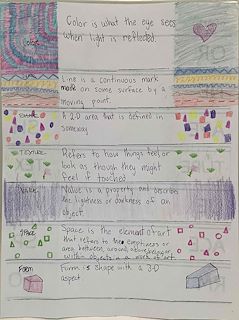 Color
Color is what the eye sees
when light is reflected.
Line is a continuous mark
made on some surface by a
moving point.
SHAPE
A 2-D area that is defined in
some way
TEXTURE
Refers to how things feel, or
look as though they might
feel if touched.
Value
Value is a property and describes
the lightness or darkness of an
object.
SPACE
Space is the element of art
that refers to the emptiness or
area between, around, above, below, or
within objects in a work of art
Form
Form: Shape with a 3-D
aspect